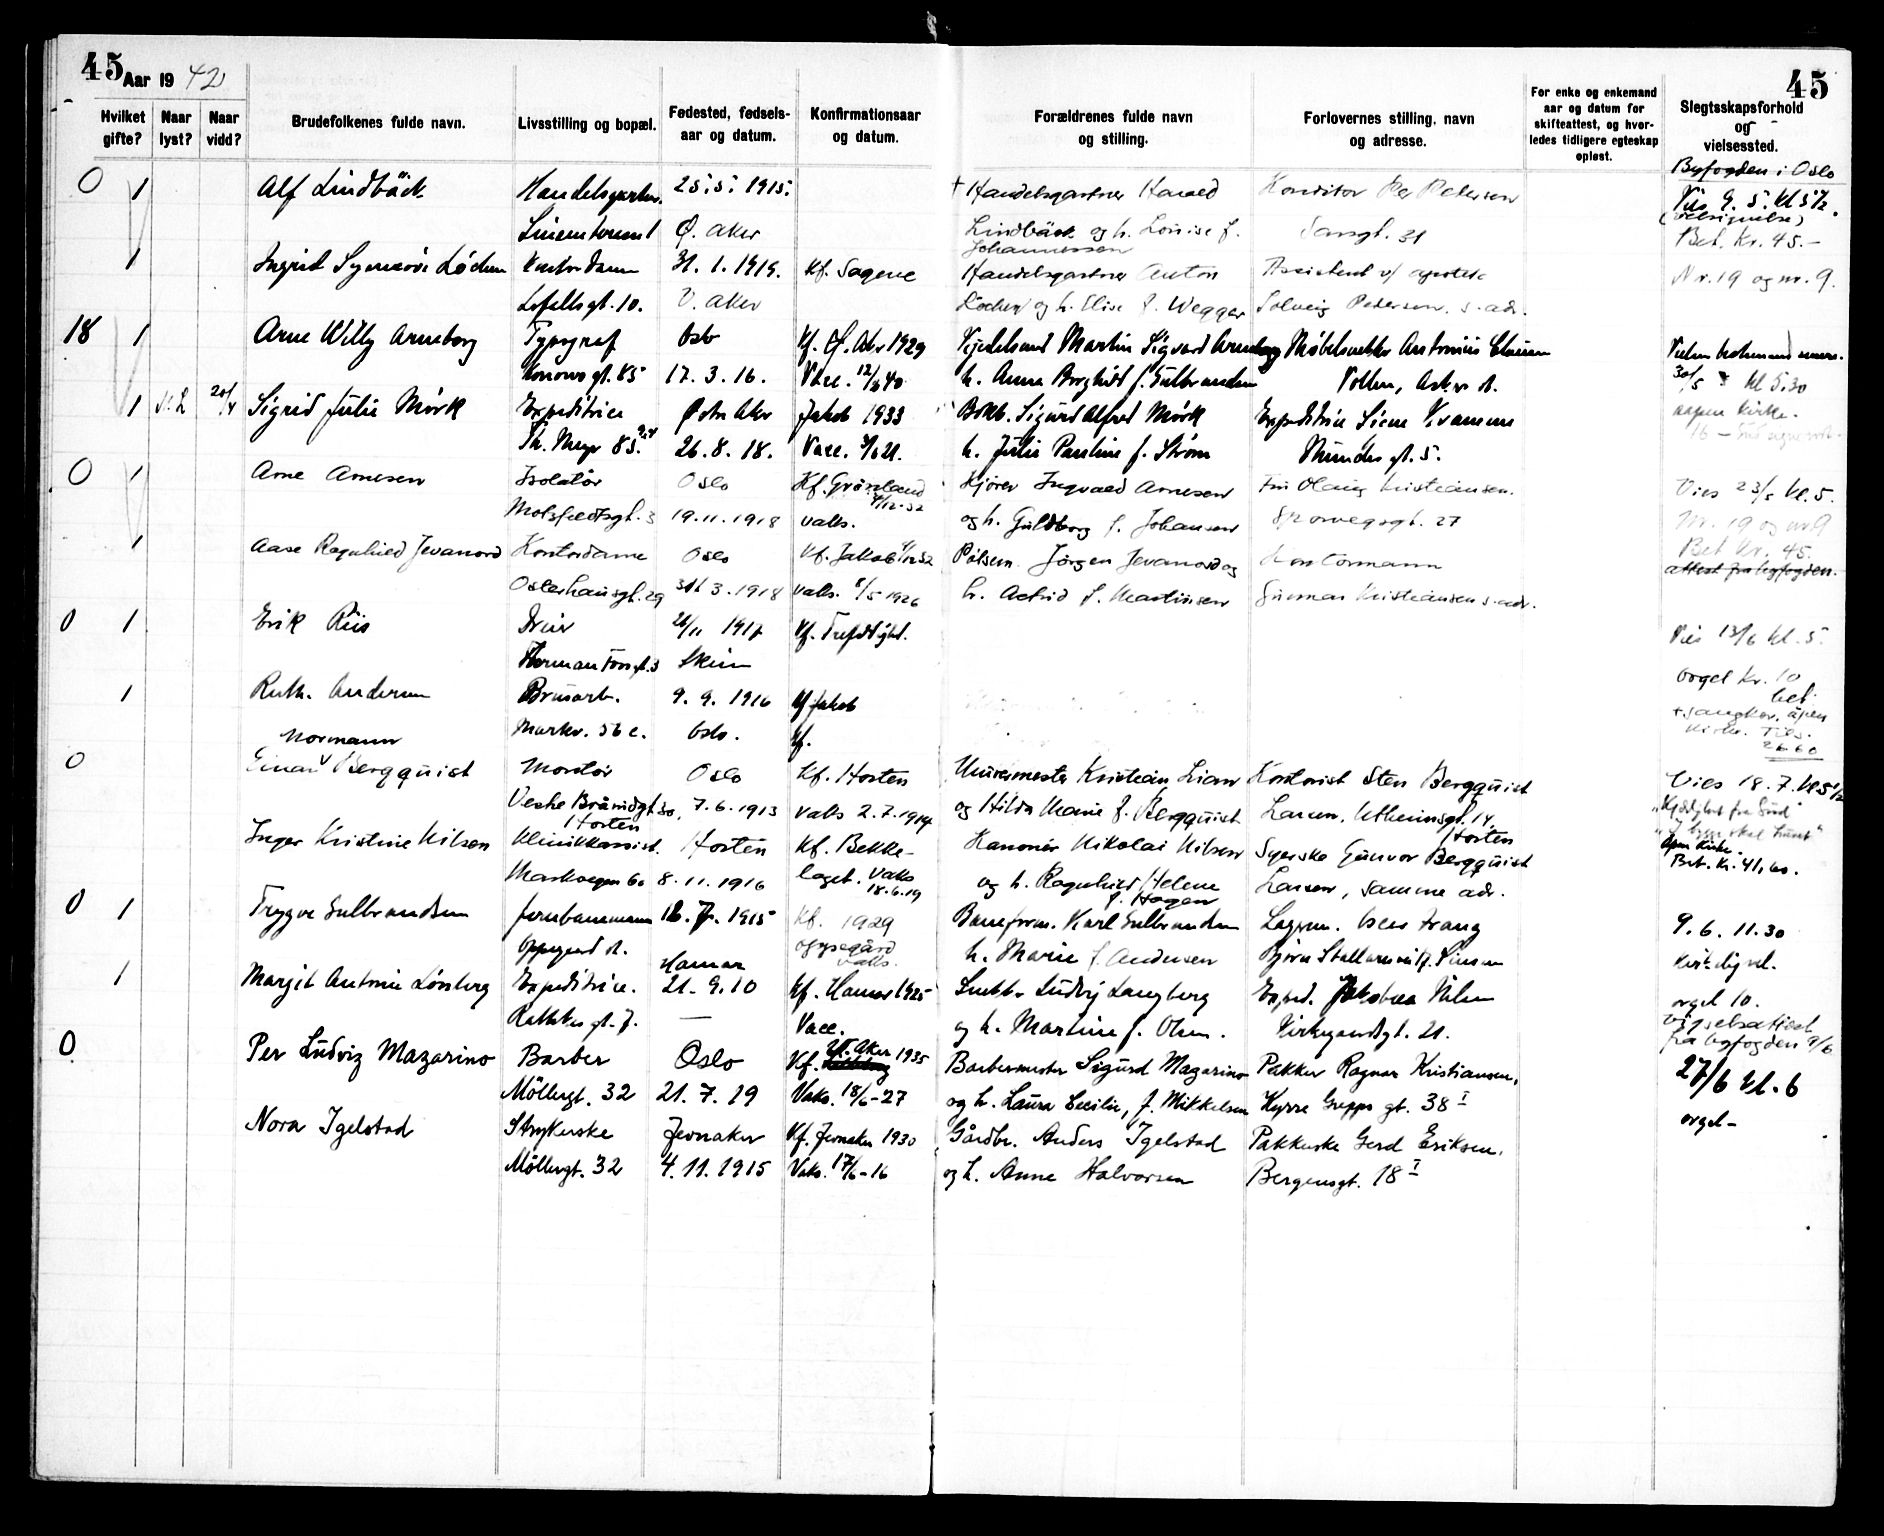 45 Aar 1942
45
Hvilket gifte?
Naar lyst?
Naar vidd?
Brudefolkenes fulde navn.
Livsstilling og bopæl.
Fødested, fødsels-
aar og datum.
Konfirmationsaar
og datum.
Forældrenes fulde navn
og stilling.
Forlovernes stilling, navn
og adresse.
For enke og enkemand
aar og datum for
skifteattest, og hvor-
ledes tidligere egteskap
opløst.
Slegtsskapsforhold
og
vielsessted.
Byfogden i Oslo
0 1 Alf Lindbäck Handelsgartn. 25.5.1915. + Handelsgartner Harald Konditor Per Pedersen Vies 9. 5. kl 5½.
(velsignelse)
Ø. Aker Lindbäck og h. Louise f. Sarsgt. 31 Bet. Kr. 45.-
Johannessen
1 Ingrid Synnøve Løchen Kontordame 31.1.1919. Kf. Sagene Handelsgartner Anton Assistent v/ apotek Nr. 19 og nr. 9.
Lofallsgt. 10. V. Aker Løchen og h. Elise f. Wegger Solveig Pedersen, s. adr.
18 1 Arne Willy Arneborg Typograf Oslo Kf. Ø. Aker 1929 Martin Sigvard Arneborg Møbelsnekker Antonius Clausen
85 17.3.16. Vacc. h. Anna Borghild f. Gulbrandsen Vollen, Asker st. 30/5 kl 5.30
1 20/4 Sigrid Julie Mørk Expeditrice Østre Aker Jakob 1933 Bokb. Sigurd Alfred Mørk Expeditrice Signe Kvamme aapen kirke.
Th. Meyer 85. 26.8.18. Vacc. h. Julie Pauline f. Strøm Munder gt. 5.
0 1 Arne Arnesen Isolatør Oslo Kf. Grønland Kjører Ingvald Arnesen Fru Olaug Kristiansen. Vies 23/5 kl. 5.
4/12-32
Motzfeldtsgt. 3 19.11.1918 vaks. og h. Guldborg f. Johansen Sporveisgt. 27 Nr. 19 og nr 9
1 Aase Ragnhild Jevanord Kontordame Oslo Kf. Jakob 4/12 32 Pølsem. Jørgen Jevanord og Kontormann Bet kr. 45.
attest fra byfogden.
Osterhausgt. 29 31.3.1918 vaks. 8/5 1926 h. Astrid f. Martinsen Gunnar Kristiansen s. adr.
0 1 Erik Riis Dreier 26/11 1917 Kf. Trefoldighet. Vies 13/6 kl. 5.
Herman Foss gt. 3 Skien
orgel kr. 10
1 Ruth Andersen Brusarb. 9.9.1916 Kf Jakob bet
+ sangkor. åpen
Markv. 56 c. Oslo. Kf. kirke. Tils.
26.60
Normann
0 Einar Bergquist Montør Oslo Kf. Horten Murermester Kristian Larsen Kontorist Sten Bergquist Vies 18.7. kl 5½
Vestre Braarudgt. 30, 7.6.1913 vaks 2.7.1914 og Hilda Marie f. Bergquist Larsen, Utheimsgt. 14.
Horten Horten
„Kjærlighet fra Gud"
Inger Kristine Nilsen Klinikkassist. Horten Kf. Bekke- Kanonér Nikolai Nilsen Syerske Gunvor Bergquist Åpen kirke.
Markvegen 60 8.11.1916 laget. Vaks og h. Ragnhild Helene Larsen, samme adr. Bet. Kr. 41,60.
18.6.19 f. Hagen
0 1 Trygve Gulbrandsen Jernbanemann 16.7.1915 Kf. 1929 Baneform. Karl Gulbrandsen 9.6. 11.30
Oppegård st. Oppegård vaks. h. Marie f. Andersen
Hamar
1 Margit Antonie Lønberg Expeditrice. 21.9.10 Kf. Hamar 1925 Snekker Ludvig Langberg Exped. Jakobea Nilsen orgel 10.
Rathkes gt. 7. — Vacc. og h. Martine f. Olsen. Kirkegaardsgt. 21. vigselsattest
fra byfogden 9/6
0 Per Ludvig Mazarino Barber Oslo Kf. V. Aker 1935 Barbermester Sigurd Mazarino Pakker Ragnar Kristiansen, 27/6 kl. 6
Möllergt. 32 21.7.19 Vaks. 18/6-27 og h. Laura Cecilie, f. Mikkelsen Kyrre Grepps gt. 38 I
orgel –
Nora Igelstad Strykerske Jevnaker Kf. Jevnaker 1930 Gårdbr. Anders Igelstad Pakkerske Gerd Eriksen,
Möllergt. 32 4.11.1915 Vaks. 17/6-16 og h. Anne Halvorsen Bergensgt. 18 I